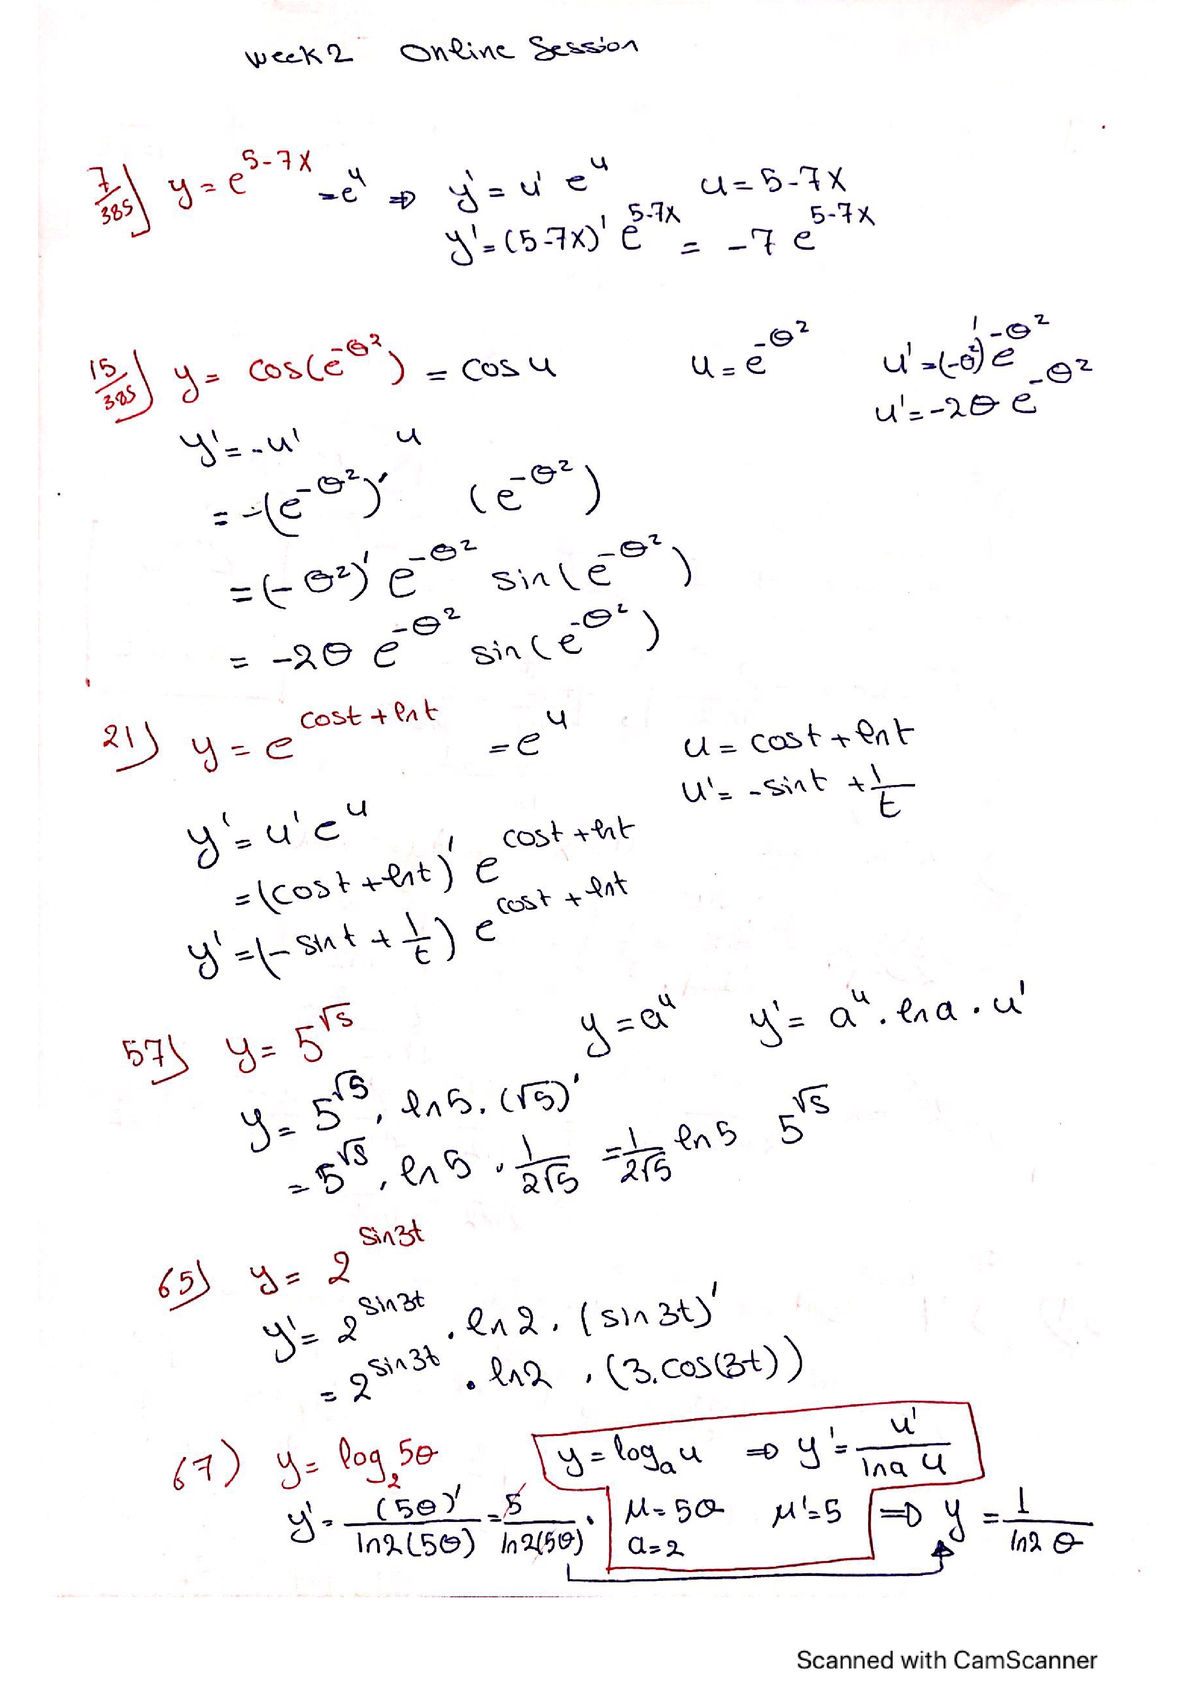 week 2 Online Session
7/385) y = e^(5-7x) = e^u ⇒ y' = u' e^u u = 5-7x
y' = (5-7x)' e^(5-7x) = -7 e^(5-7x)
15/385) y = cos(e^(-θ²)) = cos u u = e^(-θ²) u' = (-θ²)' e^(-θ²)
u' = -2θ e^(-θ²)
y' = -u' u
= -(e^(-θ²))' (e^(-θ²))
= (-θ²)' e^(-θ²) sin(e^(-θ²))
= -2θ e^(-θ²) sin(e^(-θ²))
21) y = e^(cost + lnt) = e^u u = cost + lnt
u' = -sint + 1/t
y' = u' e^u
= (cost + lnt)' e^(cost + lnt)
y' = (-sint + 1/t) e^(cost + lnt)
57) y = 5^√s y = a^u y' = a^u . lna . u'
y = 5^√5 . ln5 . (√5)'
= 5^√5 . ln5 . 1/(2√5) = 1/(2√5) ln5 5^√s
65) y = 2^(sin3t)
y' = 2^(sin3t) . ln2 . (sin3t)'
= 2^(sin3t) . ln2 . (3.cos(3t))
67) y = log₂5θ y = logₐu ⇒ y' = u'/(lna u)
y' = (5θ)'/(ln2(5θ)) = 5/(ln2(5θ)) . u = 5θ u' = 5 ⇒ y = 1/(ln2 θ)
a = 2
Scanned with CamScanner